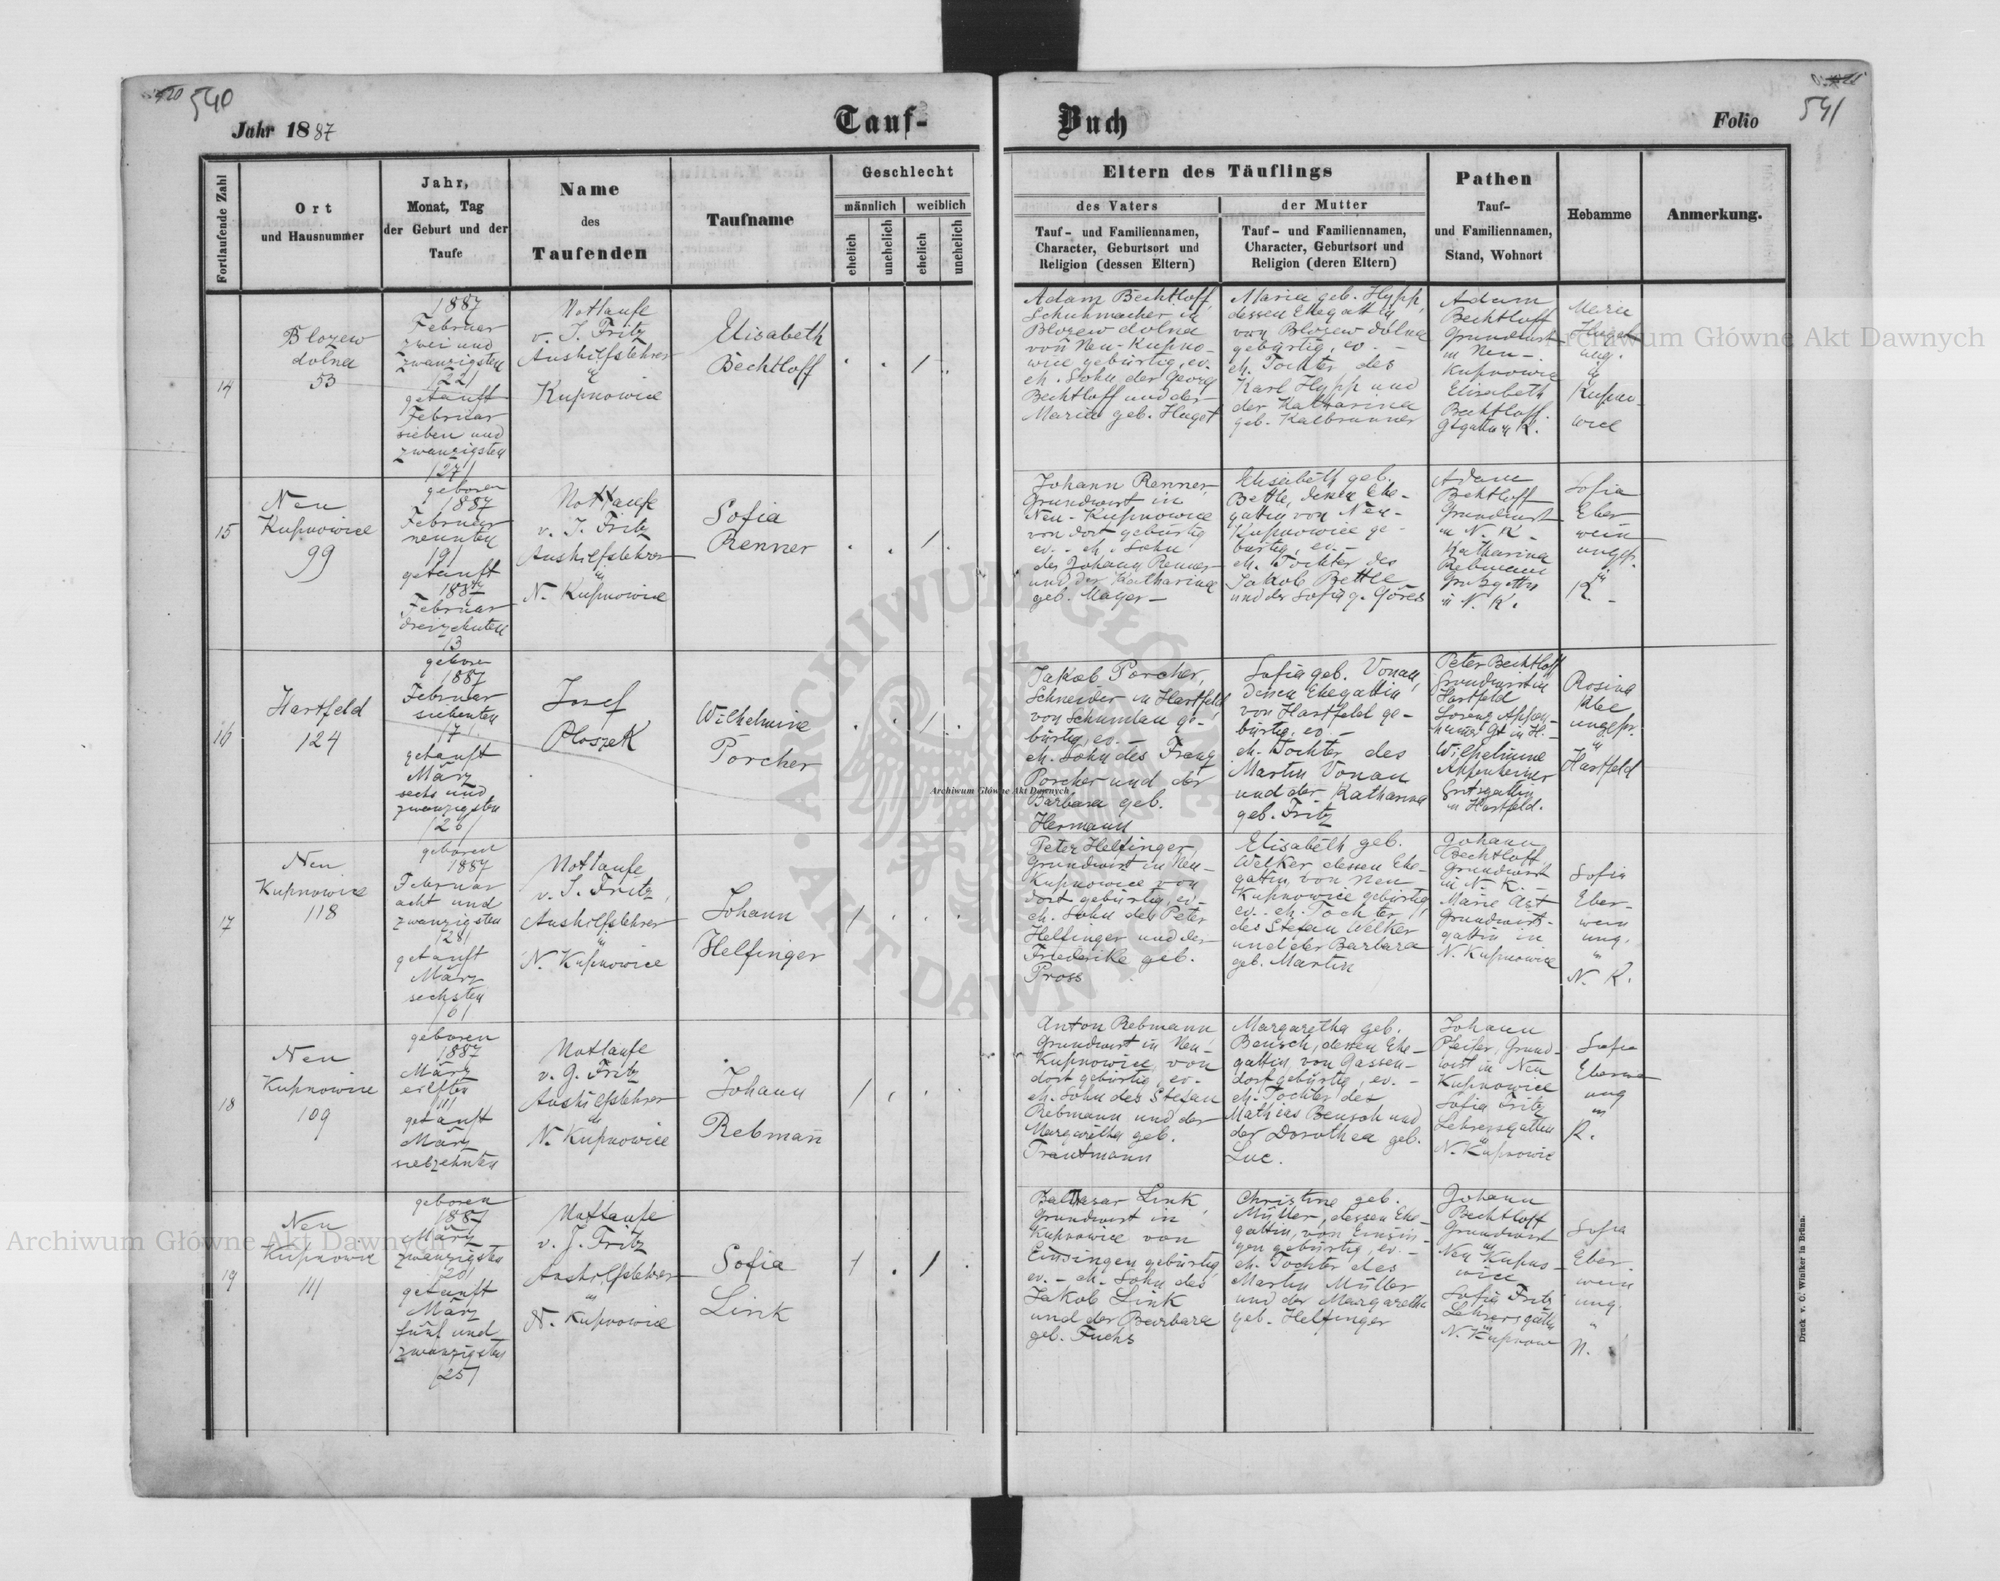 540
541
Jahr 1887
Tauf-
Buch
Folio
Fortlaufende Zahl
Ort
und Hausnummer
Jahr,
Monat, Tag
der Geburt und der
Taufe
Name
des
Taufenden
Taufname
Geschlecht
männlich
weiblich
ehelich
unehelich
ehelich
unehelich
Eltern des Täuflings
des Vaters
der Mutter
Tauf- und Familiennamen,
Character, Geburtsort und
Religion (dessen Eltern)
Tauf- und Familiennamen,
Character, Geburtsort und
Religion (deren Eltern)
Pathen
Tauf-
und Familiennamen,
Stand, Wohnort
Hebamme
Anmerkung.
14
Blozew
dolna
53
1887
Februar
zwei und
zwanzigsten
/22/
getauft
Februar
sieben und
zwanzigsten
/27/
Nottaufe
v. J. Fritz
Aushilfslehrer
in
Kupnowice
Elisabeth
Bechtloff
Adam Bechtloff,
Schuhmacher in
Blozew dolna
von Neu-Kupno-
wice gebürtig, ev.
eh. Sohn der Georg
Bechtloff und der
Maria geb. Huget
Maria geb. Hypp,
dessen Ehegattin
von Blozew dolna
gebürtig, ev. -
eh. Tochter des
Karl Hypp und
der Katharina
geb. Kalbrunner
Adam
Bechtloff
Grundwirt
in Neu-
Kupnowice
Elisabeth
Bechtloff.
Maria
Huget
ung.
in
Kupno-
wice
15
Neu
Kupnowice
99
geboren
1887
Februar
neunten
/9/
getauft
1887
Februar
dreizehnten
13
Nottaufe
v. J. Fritz
Aushilfslehrer
in
N. Kupnowice
Sofia
Renner
Johann Renner,
Grundwirt in
Neu-Kupnowice
von dort gebürtig
ev. - eh. Sohn
des Johann Renner
und der Katharina
geb. Mayer -
Elisabeth geb.
Bettle, dessen Ehe-
gattin von Neu-
Kupnowice ge-
bürtig, ev. -
eh. Tochter des
Jakob Bettle
und der Sofia g. Göres
Adam
Bechtloff
Grundwirt
in N. K.
Katharina
Rebmann
in N. K.
Sofia
Eber
wein
ungepr.
in
K. -
16
Hartfeld
124
geboren
1887
Februar
siebenten
/7/
getauft
März
sechs und
zwanzigsten
/26/
Josef
Ploszek
Wilhelmine
Porcher
Jakob Porcher,
Schneider in Hartfeld
von Schumlau ge-
bürtig, ev. -
eh. Sohn des Franz
Porcher und der
Barbara geb.
Hermann
Sofia geb. Vonau,
dessen Ehegattin
von Hartfeld ge-
bürtig, ev. -
eh. Tochter des
Martin Vonau
und der Katharina
geb. Fritz
Peter Bechtloff
Grundwirt in
Hartfeld
Wilhelmine
Appenheimer
in Hartfeld.
Rosina
ungepr.
in
Hartfeld
17
Neu
Kupnowice
118
geboren
1887
Februar
acht und
zwanzigsten
/28/
getauft
März
sechsten
/6/
Nottaufe
v. J. Fritz,
Aushilfslehrer
in
N. Kupnowice
Johann
Helfinger
Peter Helfinger,
Grundwirt in Neu-
Kupnowice von
dort gebürtig, ev. -
eh. Sohn des Peter
Helfinger und der
Friederike geb.
Pross
Elisabeth geb.
Welker dessen Ehe-
gattin, von Neu
Kupnowice gebürtig,
ev. - eh. Tochter
des Stefan Welker
und der Barbara
geb. Martin
Johann
Bechtloff,
Grundwirt
in N. K. -
Marie Art
Grundwirt-
gattin in
N. Kupnowice
Sofia
Eber-
wein
ung.
in
N. K.
18
Neu
Kupnowice
109
geboren
1887
März
eilften
/11/
getauft
März
siebzehnten
Nottaufe
v. J. Fritz
Aushilfslehrer
in
N. Kupnowice
Johann
Rebmann
Anton Rebmann,
Grundwirt in Neu-
Kupnowice, von
dort gebürtig, ev. -
eh. Sohn des Stefan
Rebmann und der
Margaretha geb.
Trautmann
Margaretha geb.
Bensch, dessen Ehe-
gattin, von Gassen-
dorf gebürtig, ev. -
eh. Tochter des
Mathias Bensch und
der Dorothea geb.
Luc.
Johann
Pfeifer, Grund-
wirt in Neu
Kupnowice
Sofia Fritz
Lehrersgattin
in
N. Kupnowice
Sofia
ung
in
K.
19
Neu
Kupnowice
111
geboren
1887
März
zwanzigsten
/20/
getauft
März
fünf und
zwanzigsten
/25/
Nottaufe
v. J. Fritz
Aushilfslehrer
in
N. Kupnowice
Sofia
Link
Baltasar Link,
Grundwirt in
Kupnowice von
Einsingen gebürtig,
ev. - eh. Sohn des
Jakob Link
und der Barbara
geb. Fuchs
Christine geb.
Müller, dessen Ehe-
gattin, von Einsin-
gen gebürtig, ev. -
eh. Tochter des
Martin Müller
und der Margaretha
geb. Helfinger
Johann
Bechtloff
Grundwirt
in
Neu Kupno-
wice
Sofia Fritz
Lehrersgattin
in
N. Kupnow
Sofia
Eber-
wein
ung.
in
N.
Druck v. C. Winiker in Brünn.
Archiwum Główne Akt Dawnych
Archiwum Główne Akt Dawnych
Archiwum Główne Akt Dawnych
ARCHIWUM GŁÓWNE AKT DAWNYCH